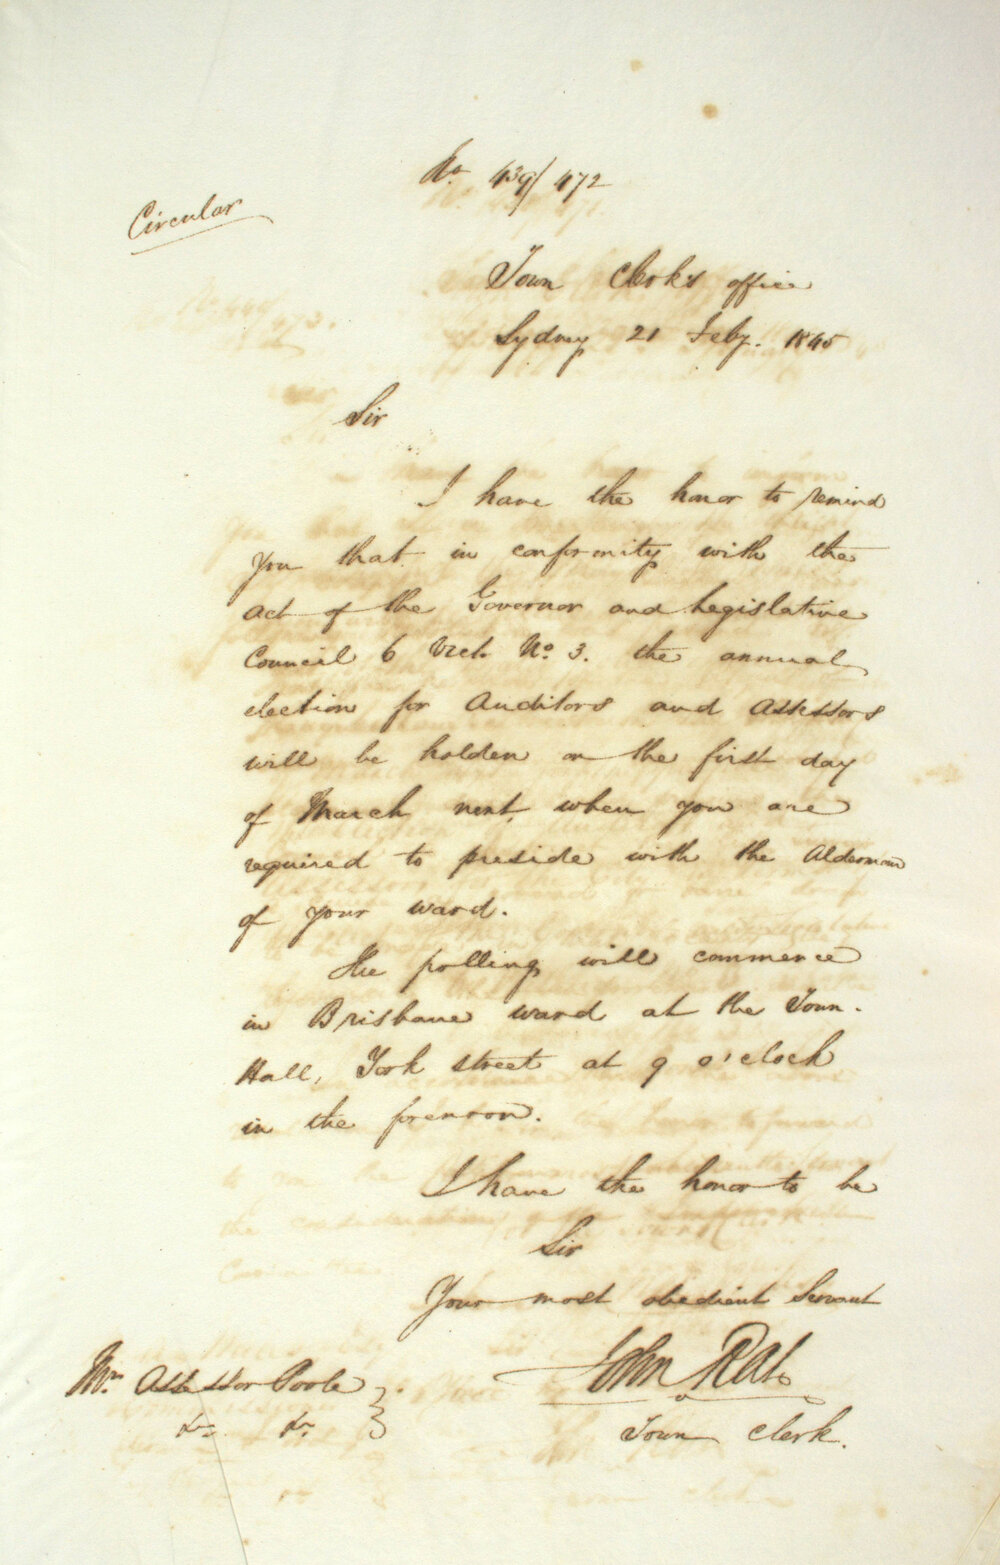 No. 439/472
Circular
Town Clerk's office
Sydney 21 Feby. 1845
Sir
I have the honor to remind
you that in conformity with the
act of the Governor and Legislative
Council 6 Vict. No. 3. the annual
election for Auditors and Assessors
will be holden on the first day
of March next, when you are
required to preside with the Alderman
of your ward.
The polling will commence
in Brisbane ward at the Town-
Hall, York street at 9 o'clock
in the forenoon.
I have the honor to be
Sir
Your most obedient Servant
John Rae
Town Clerk.
Mr. Assessor Poole
&c. &c.